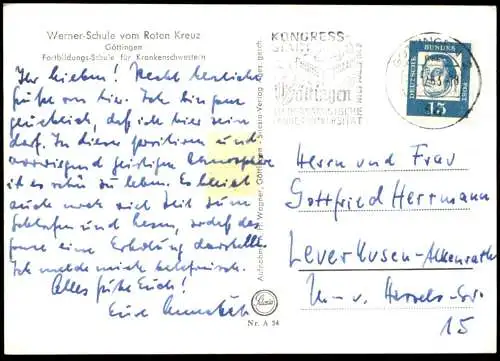 Werner-Schule vom Roten Kreuz
Göttingen
Fortbildungs-Schule für Krankenschwestern
Ihr Lieben! Recht herzliche
Grüße von hier. Ich bin ganz
glücklich, daß ich hier sein
darf. In dieser positiven und
vorwiegend geistigen Atmosphäre
ist es schön zu leben. Es bleibt
auch noch Zeit zum
Schlafen und Lesen, sodaß das
ganze eine Erholung darstellt.
Ich melde mich telefonisch.
Alles Gute Euch!
Eure
Aufnahme: H. Wagner, Göttingen
Nr. A 54
KONGRESS-
STADT
Göttingen
DEUTSCHE
BUNDES
POST
15
Herrn und Frau
Gottfried Herrmann
Leverkusen-Alkenrath
15